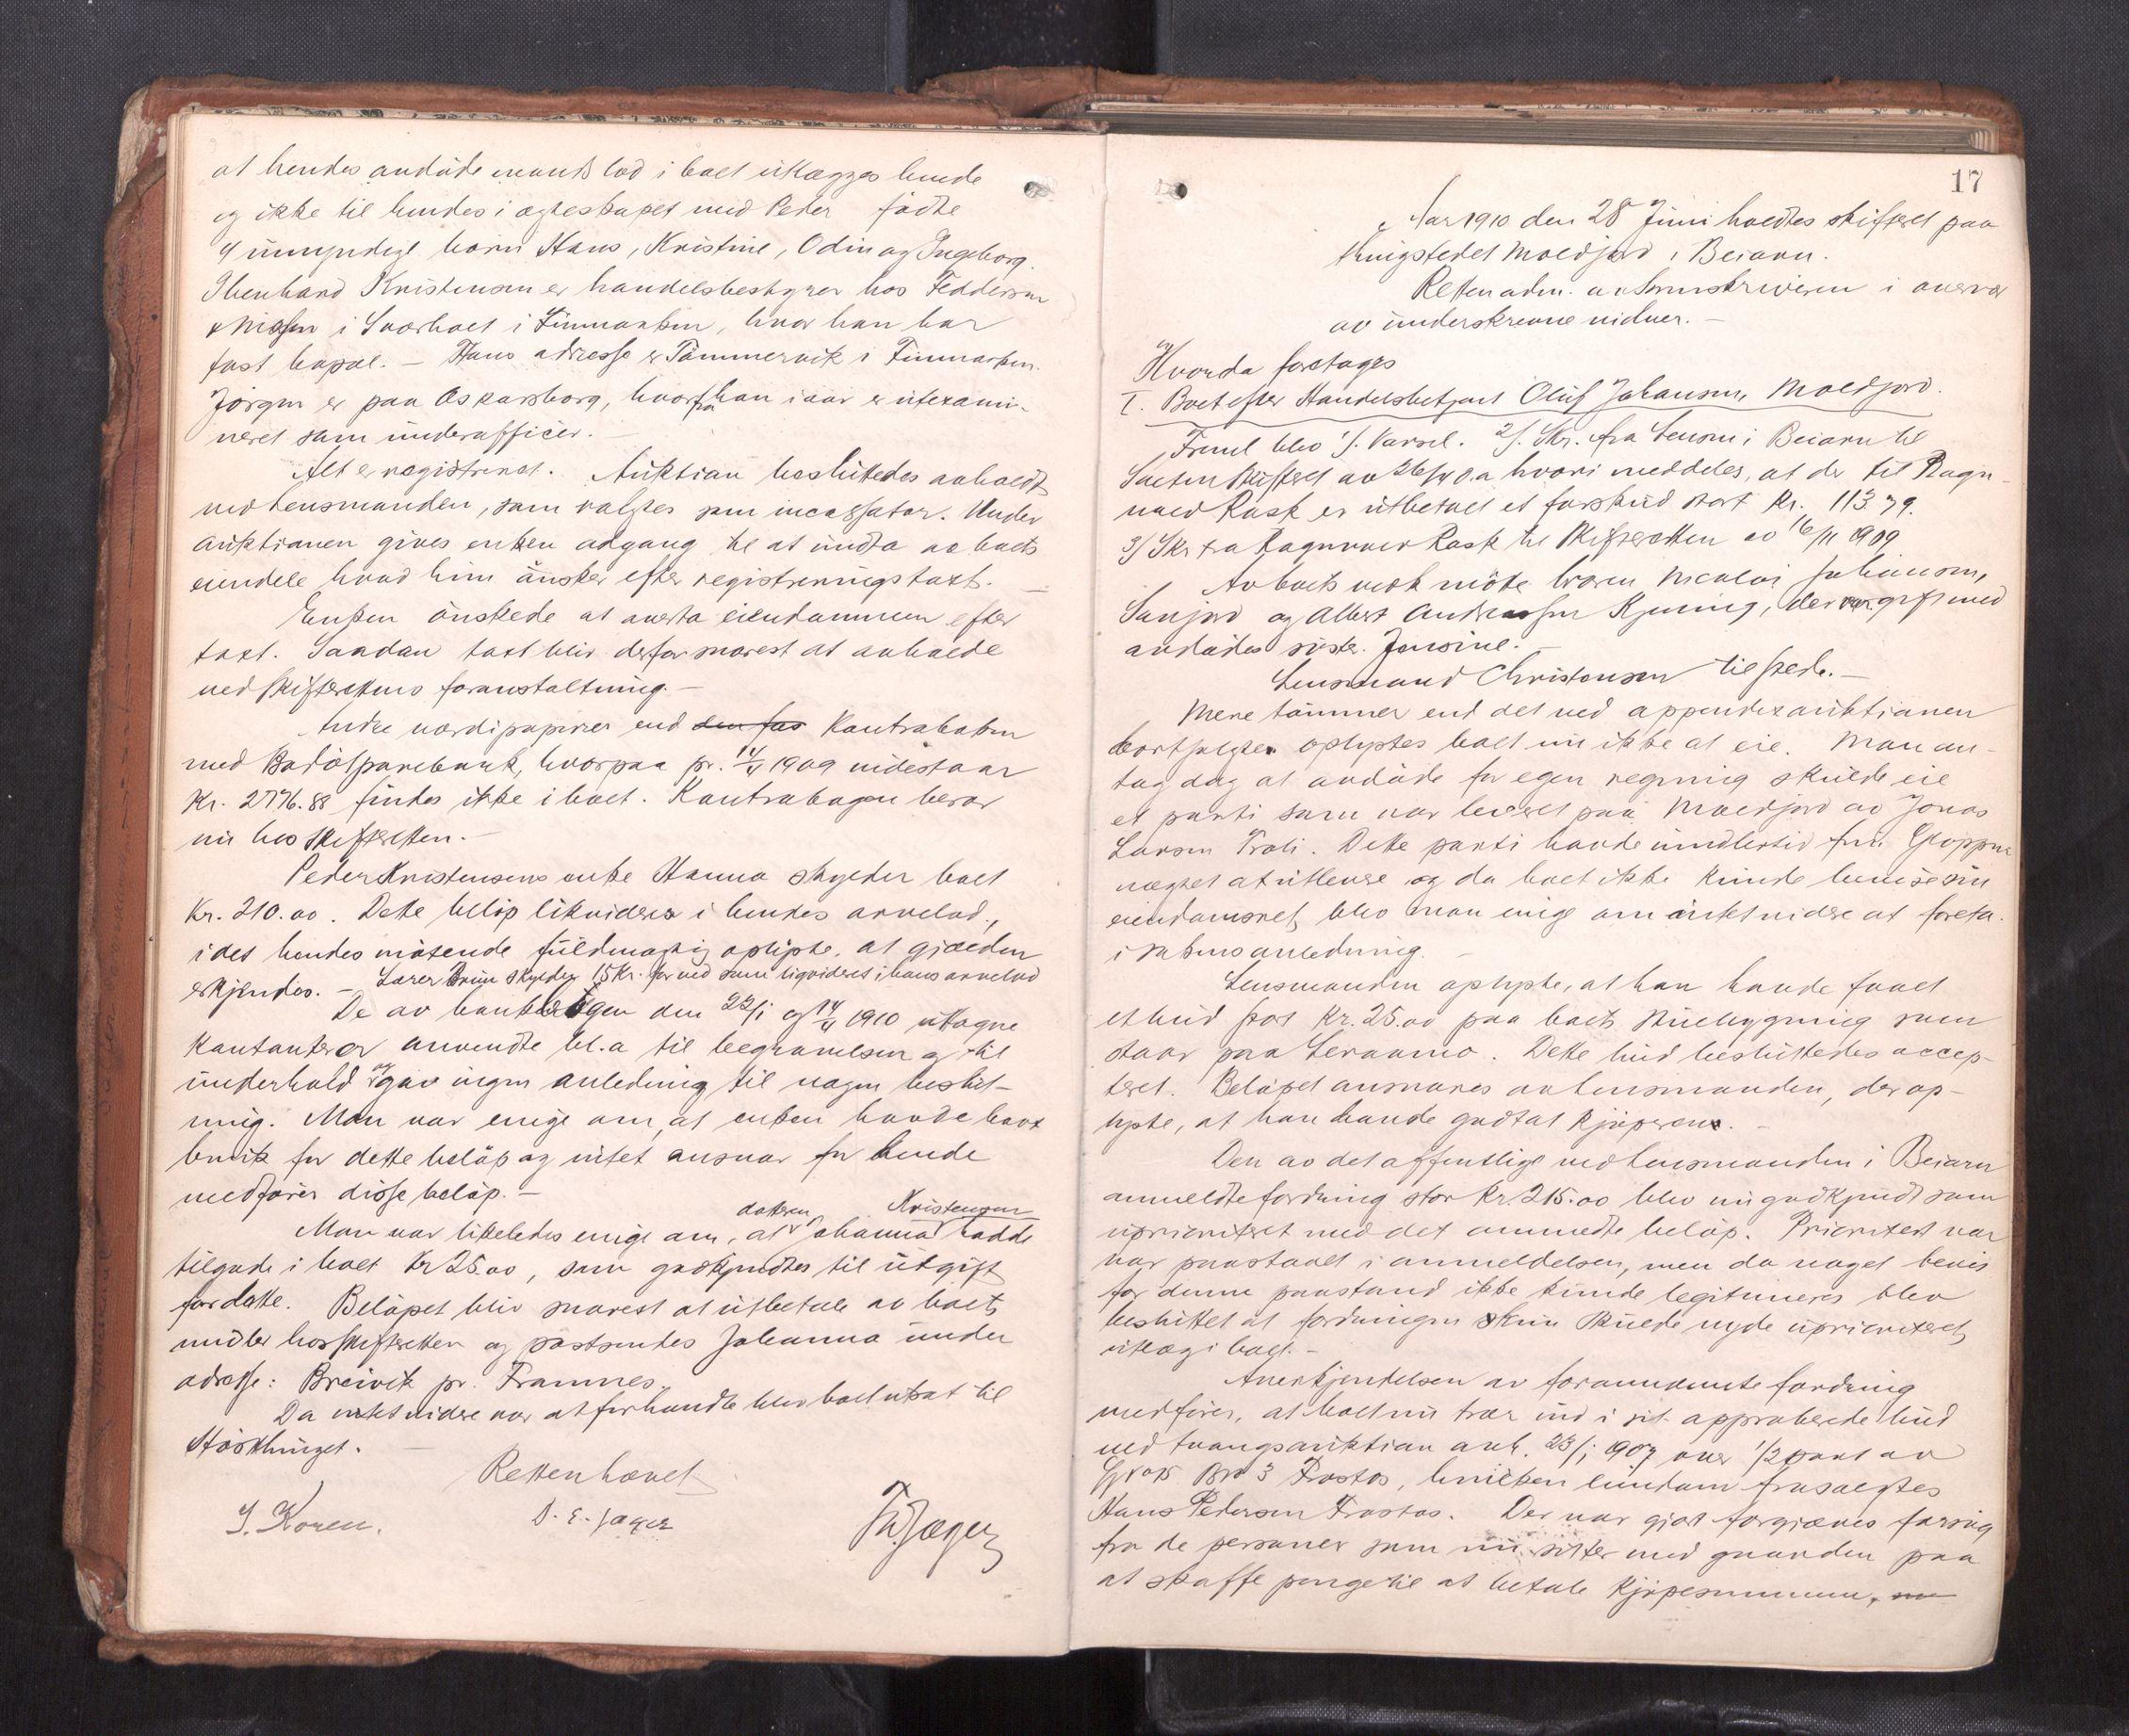 at hendes avdöde mands lod i boet utlægges hende
og ikke til hendes i ægteskapet med Peder födte
4 umyndige barn Hans, Kristine, Odin og Ingeborg.
Kristensen er handelsbestyrer hos Feddersen
& Nissen i Sværholt i Finmarken, hvor han har
fast bopæl. — Hans adresse er Tömmervik i Finmarken.
Jörgen er paa Oskarsborg, hvorfra han i aar er utexami-
neret som underofficer. —
Alt er registreret. Auktion besluttedes avholdt
ved lensmanden, som valgtes som incassator. Under
auktionen gives enken adgang til at undta av boets
eiendele hvad hun önsker efter registreringstaxt. —
Enken önskede at overta eiendommen efter
taxt. Saadan taxt blir derfor snarest at avholde
ved skifterettens foranstaltning. —
Andre værdipapirer end Kontraboken
med Bodö sparebank, hvorpaa pr. 14/4 1909 indestaar
Kr. 2776.88 findes ikke i boet. Kontrabogen beror
nu hos skifteretten. —
Peder Kristensens enke Hanna skylder boet
Kr. 210.00. Dette belöp likvideres i hendes arvelod,
idet hendes mötende fuldmægtig oplyste, at gjælden
erkjendes. — Lærer Brun skylder 15 Kr. for ved som liqvideres i hans arvelod
De av bankbogen den 22/1 og 14/4 1910 uttagne
kontanter er anvendte bl.a til begravelsen og til
underhold og gav ingen anledning til nogen beslut-
ning. Man var enige om, at enken havde havt
bruk for dette belöp og intet ansvar for hende
medförer disse belöp. —
Man var likeledes enige om, at datteren Johanna Kristensen hadde
tilgode i boet Kr 25.00, som godkjendtes til utgift
for dette. Belöpet blir snarest at utbetale av boets
midler hos skifteretten og postsendes Johanna under
adresse: Breivik pr. Framnes.
Da intet videre var at forhandle blev boet utsat til
Hösttinget. —
Retten hævet
J. Koren. D. E. Jæger Th. Jæger
17
Aar 1910 den 28 Juni holdtes skifteret paa
thingstedet Moldjord i Beiarn.
Retten adm. av Sorenskriveren i overvær
av underskrevne vidner. —
Hvorda foretoges
I. Boet efter Handelsbetjent Oluf Johansen, Moldjord.
Freml blev 1/. Varsel. 2/. Skr. fra Lensm i Beiarn til
Salten skifteret av d.a, hvori meddeles, at der til Ragn-
vald Rask er utbetalt et forskud stort Kr. 113 79.
3/ Skr fra Ragnvald Rask til Skifteretten av 16/11 1909
Av boets vedk mötte broren Nicolai Johansen,
Sanjord og Albert Andreassen Kjerring, der var gift med
avdödes söster Jensine. —
Lensmand Christensen tilstede. —
Mere tömmer end det ved appendixauktionen
bortsolgte oplystes boet nu ikke at eie. Man an-
tog dog at avdöde for egen regning skulde eie
et parti som var leveret paa Moldjord av Jonas
Larsen Troli. Dette parti havde imidlertid fru Gloppen
nægtet at utlevere og da boet ikke kunde bevise sin
eiendomsret, blev man enige om intet videre at foreta
i sakens anledning. —
Lensmanden oplyste, at han havde faaet
et bud stort Kr. 25.00 paa boets stuebygning som
staar paa Leraamo. Dette bud besluttedes accep-
teret. Belöpet ansvares av lensmanden, der op-
lyste, at han havde godtat kjöperen. —
Den av det offentlige ved lensmanden i Beiarn
anmeldte fordring stor Kr. 215.00 blev nu godkjendt som
uprioritert med det anmeldte belöp. Prioritet var
var paastaaet i anmeldelsen, men da noget bevis
for denne paastand ikke kunde legitimeres blev
besluttet at fordringen kun skulde nyde uprioriteret
utlæg i boet. —
Anerkjendelsen av forannævnte fordring
medförer, at boet nu træ ind i sit approberede bud
ved tvangsauktion avh. 23/1 1907 over 1/2 part av
Gno 15 Bno 3 Trostos, hvilken eiendom frasolgtes
Hans Pedersen Trostos. Der var gjort forgjæves forsög
fra de personer som nu sitter med gaarden paa
at skaffe penge til at betale kjöpesummen,